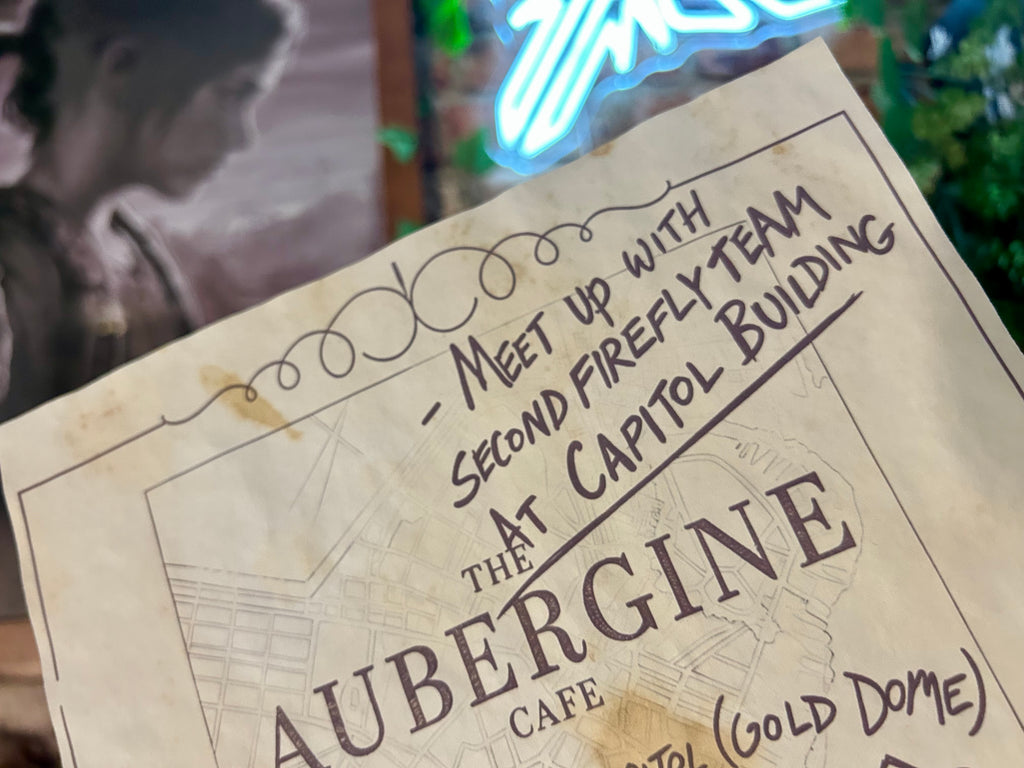 - MEET UP WITH
SECOND FIREFLY TEAM
AT CAPITOL BUILDING
THE
AUBERGINE
CAFE
(GOLD DOME)